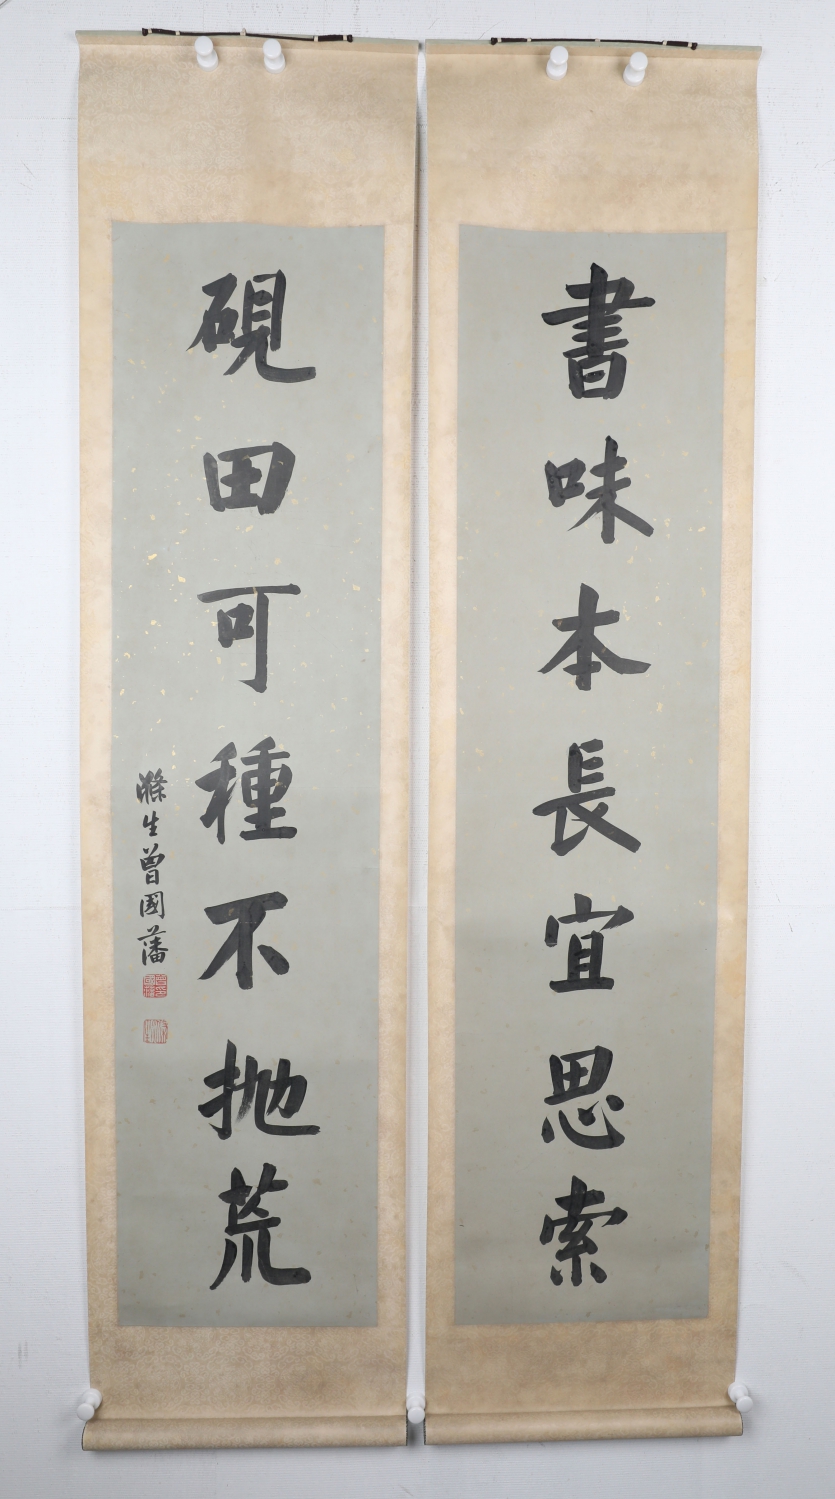 書味本長宜思索
硯田可種不抛荒
滌生曾國藩